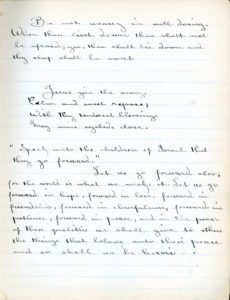 Be not weary in well doing.
When thou liest down, thou shalt not
be afraid; yea, thou shalt lie down and
thy sleep shall be sweet.
Jesus give the weary,
Calm and sweet repose;
With thy tenderest blessing
May our eyelids close.
"Speak unto the children of Israel that
they go forward."
Let us go forward also;
for the world is what we make it. Let us go
forward in hope, forward in love, forward in
friendship, forward in cheerfulness, forward in
patience, forward in peace, and in the power
of these qualities we shall give to others
the things that belong unto their peace
and so shall we be heroic...